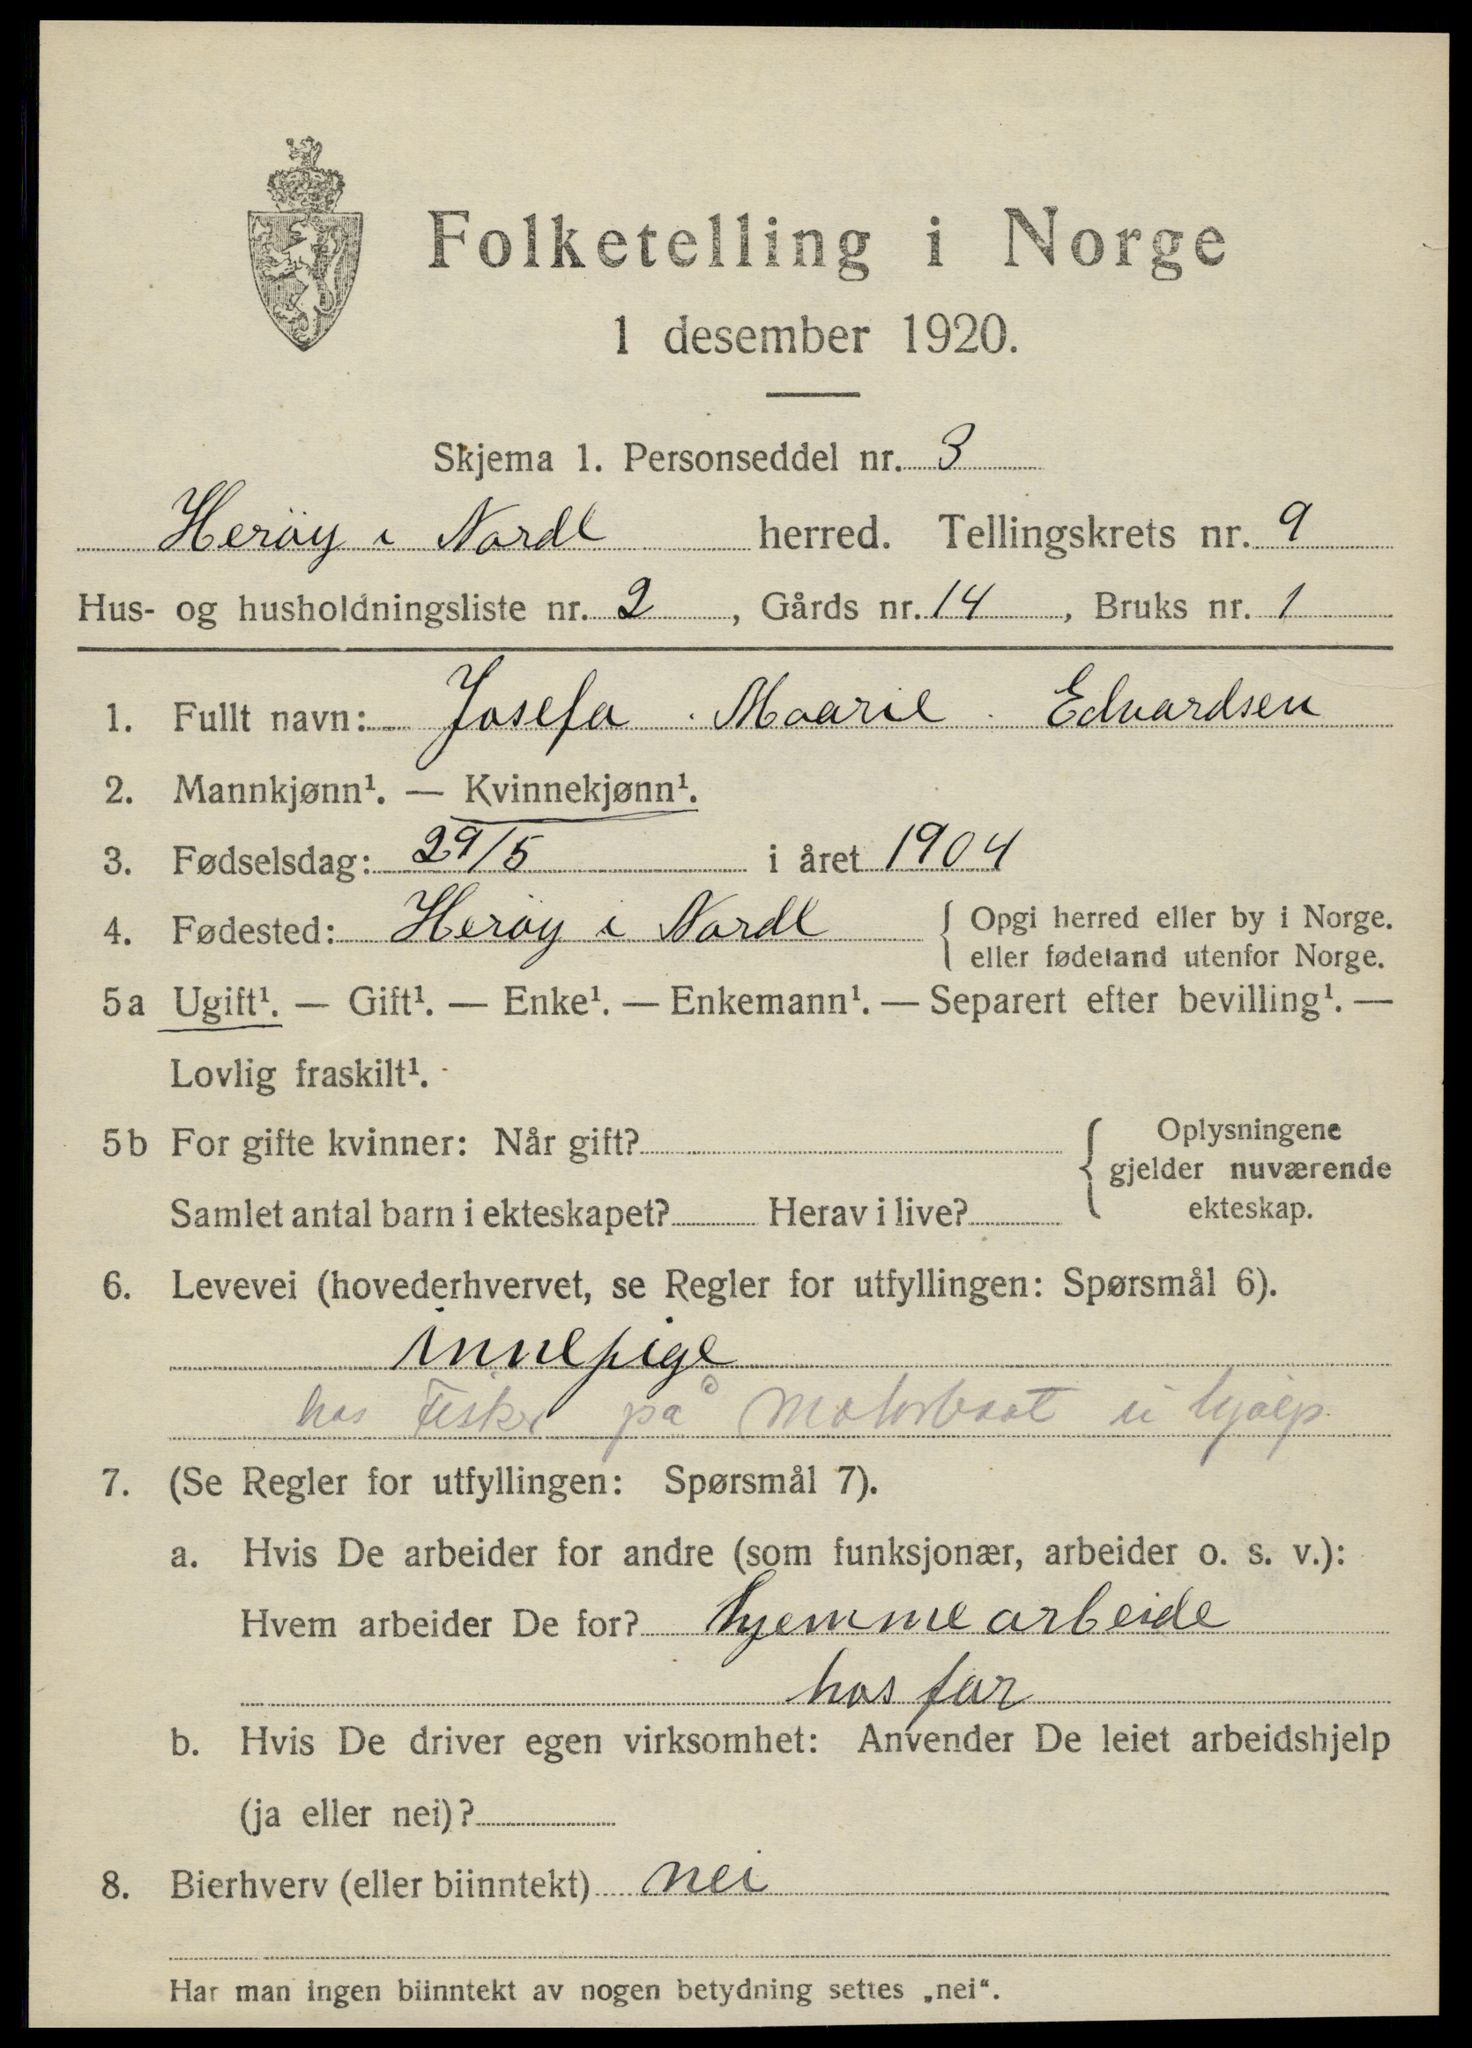 Folketelling i Norge
1 desember 1920.
Skjema 1. Personseddel nr. 3
Herøy i Nordl herred. Tellingskrets nr. 9
Hus- og husholdningsliste nr. 2, Gårds nr. 14, Bruks nr. 1
1. Fullt navn: Josefa Maarie Edvardsen
2. Mannkjønn¹. — Kvinnekjønn¹.
3. Fødselsdag: 29/5 i året 1904
4. Fødested: Herøy i Nordl { Opgi herred eller by i Norge.
eller fødeland utenfor Norge.
5a Ugift¹. — Gift¹. — Enke¹. — Enkemann¹. — Separert efter bevilling¹. —
Lovlig fraskilt¹.
5b For gifte kvinner: Når gift? { Oplysningene
gjelder nuværende
ekteskap.
Samlet antal barn i ekteskapet? Herav i live?
6. Levevei (hovederhvervet, se Regler for utfyllingen: Spørsmål 6).
innepige
hos Fisker på Motorbaat u hjælp
7. (Se Regler for utfyllingen: Spørsmål 7).
a. Hvis De arbeider for andre (som funksjonær, arbeider o. s. v.):
Hvem arbeider De for? hjemmearbeide
hos far
b. Hvis De driver egen virksomhet: Anvender De leiet arbeidshjelp
(ja eller nei)?
8. Bierhverv (eller biinntekt) nei
Har man ingen biinntekt av nogen betydning settes „nei“.